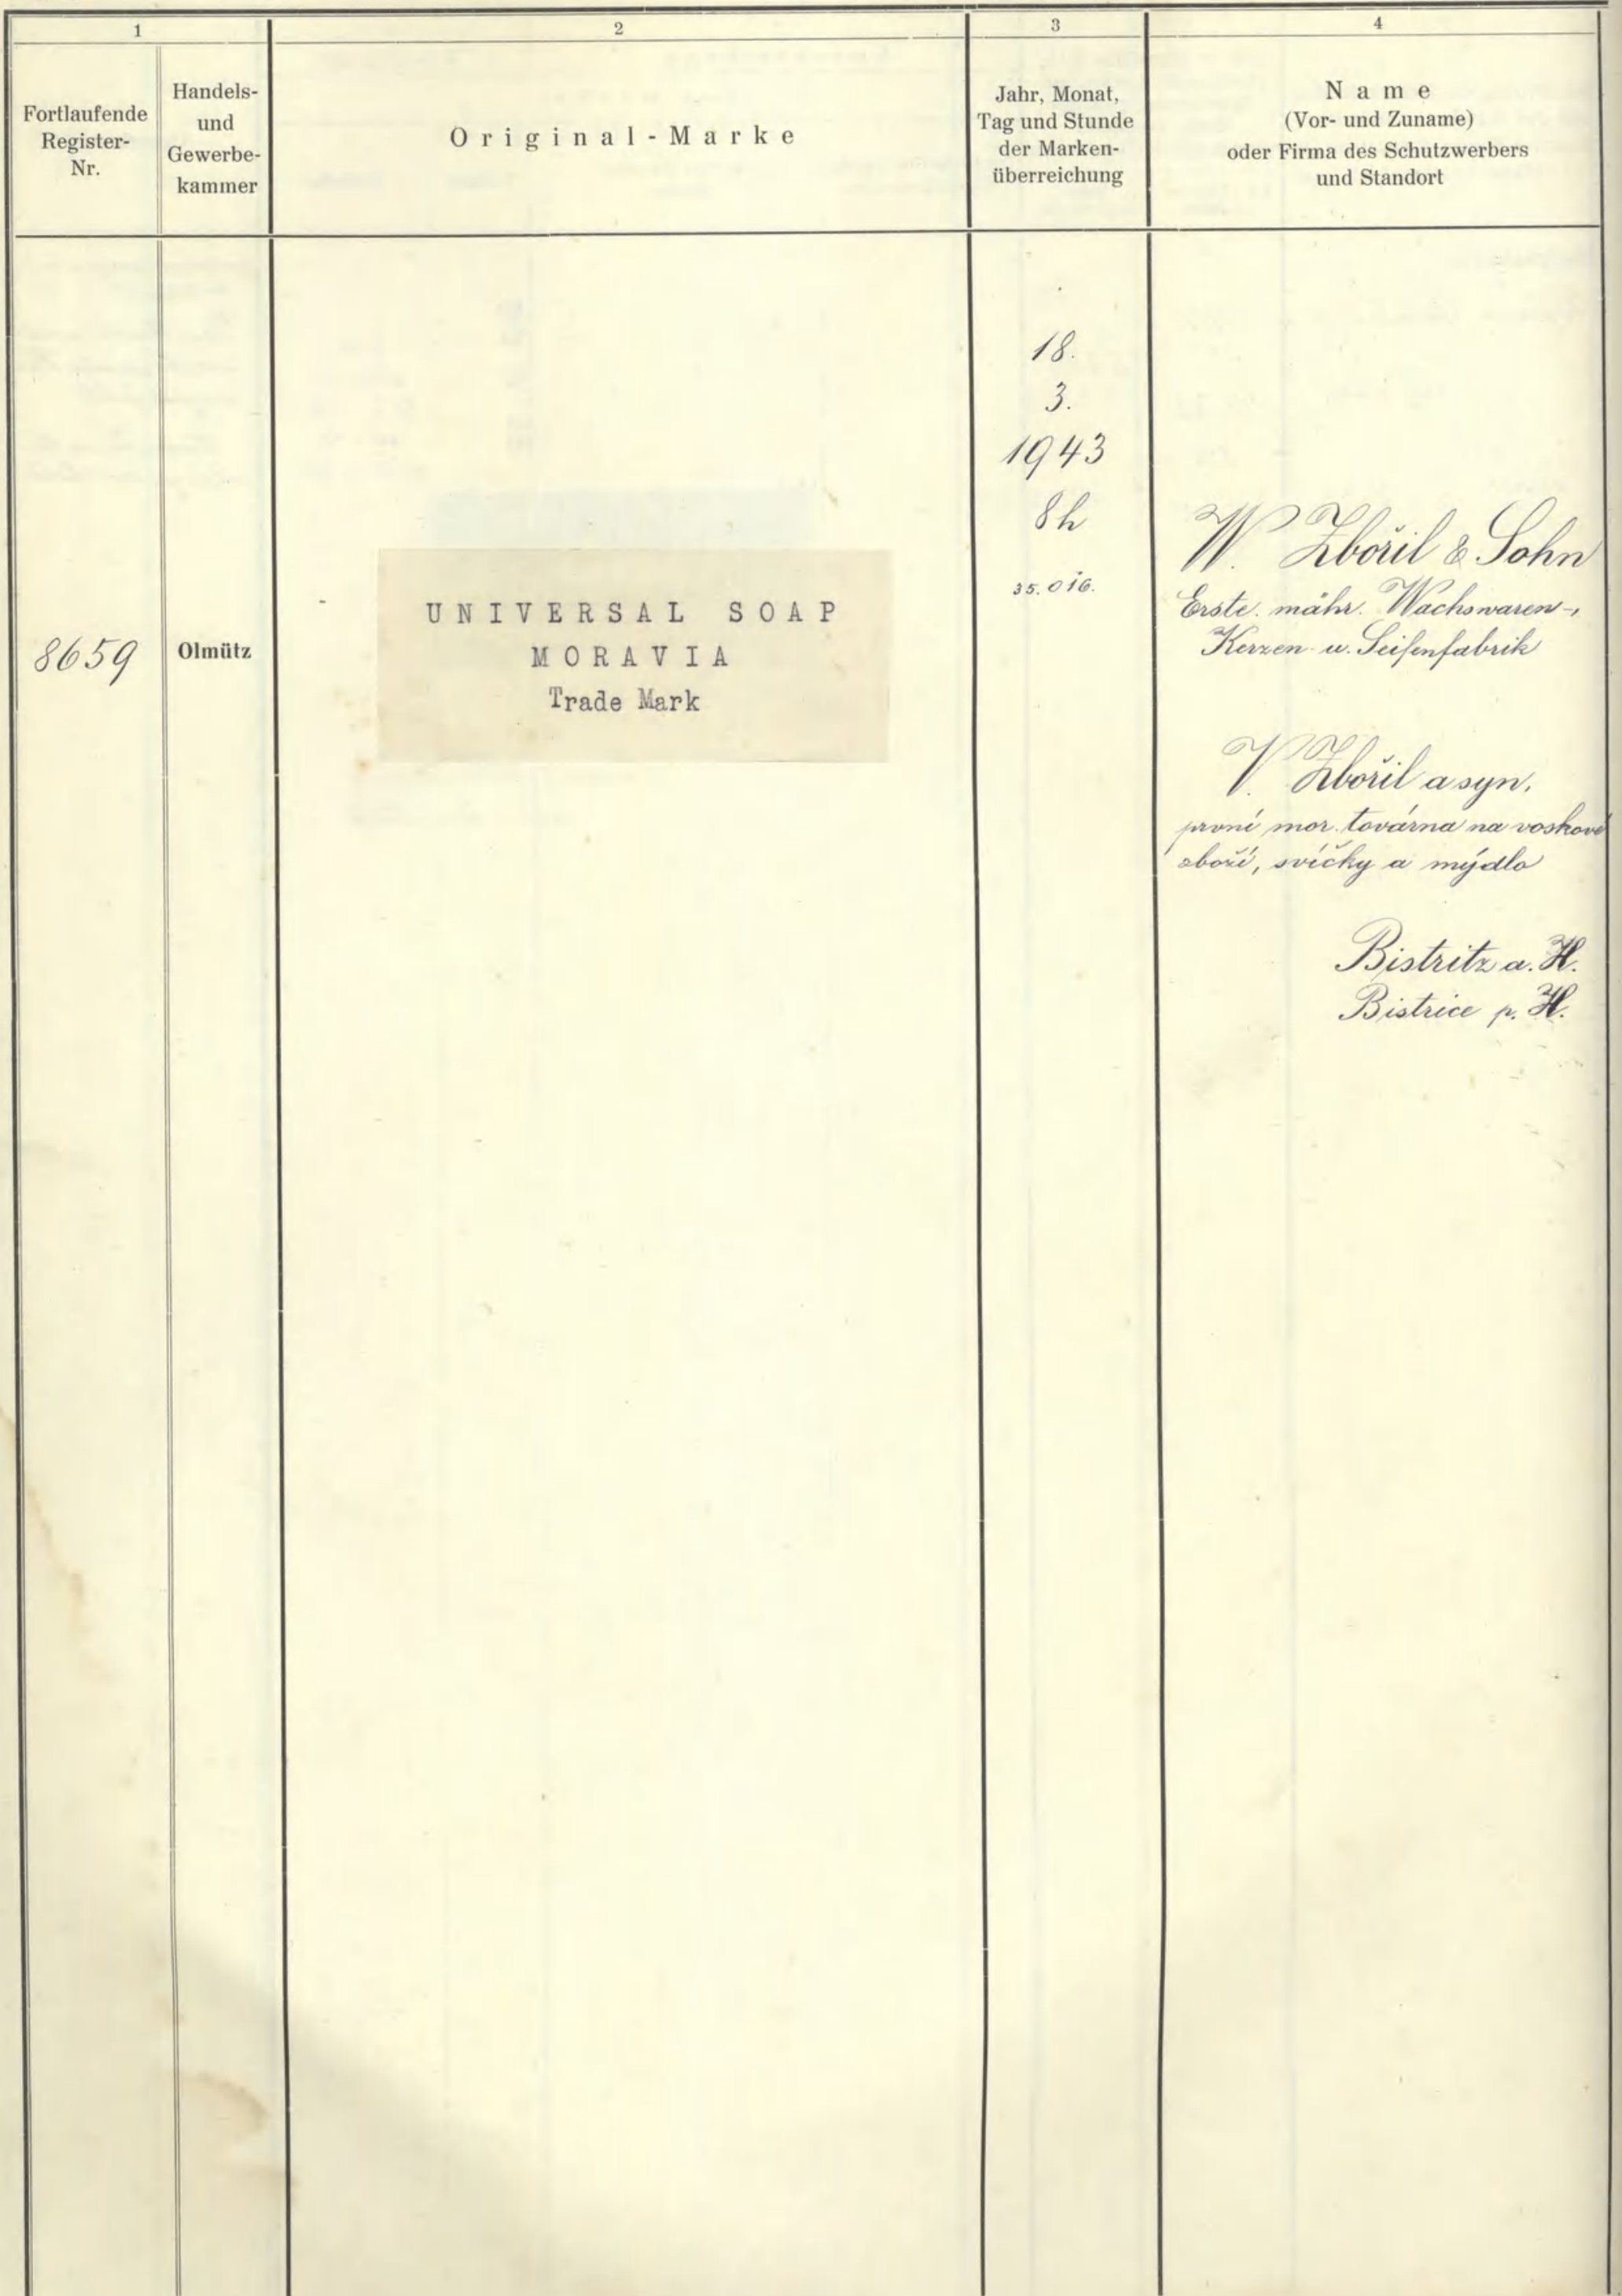 1
2
3
4
Fortlaufende
Register-
Nr.
Handels-
und
Gewerbe-
kammer
Original-Marke
Jahr, Monat,
Tag und Stunde
der Marken-
überreichung
Name
(Vor- und Zuname)
oder Firma des Schutzwerbers
und Standort
8659
Olmütz
UNIVERSAL SOAP
MORAVIA
Trade Mark
18.
3.
1943
8h
35.016.
W. Zbořil & Sohn
Erste. mähr. Wachswaren-,
Kerzen- u. Seifenfabrik
V. Zbořil a syn,
první mor. továrna na voskové
zboží, svíčky a mýdlo
Bistritz a. H.
Bistrice p. H.